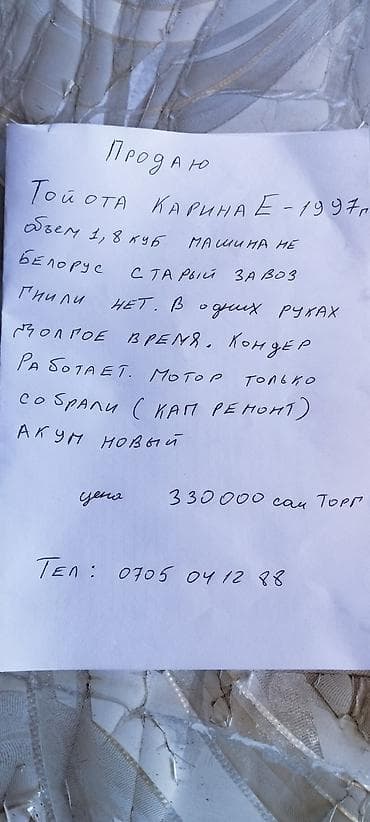 Продаю
Тойота Карина Е - 1997г
объем 1,8 куб машина не
Белорус старый завоз
гнили нет. В одних руках
долгое время. Кондер
Работает. мотор только
собрали (кап ремонт)
акум новый
цена 330000 сом Торг
Тел: 0705 04 12 88